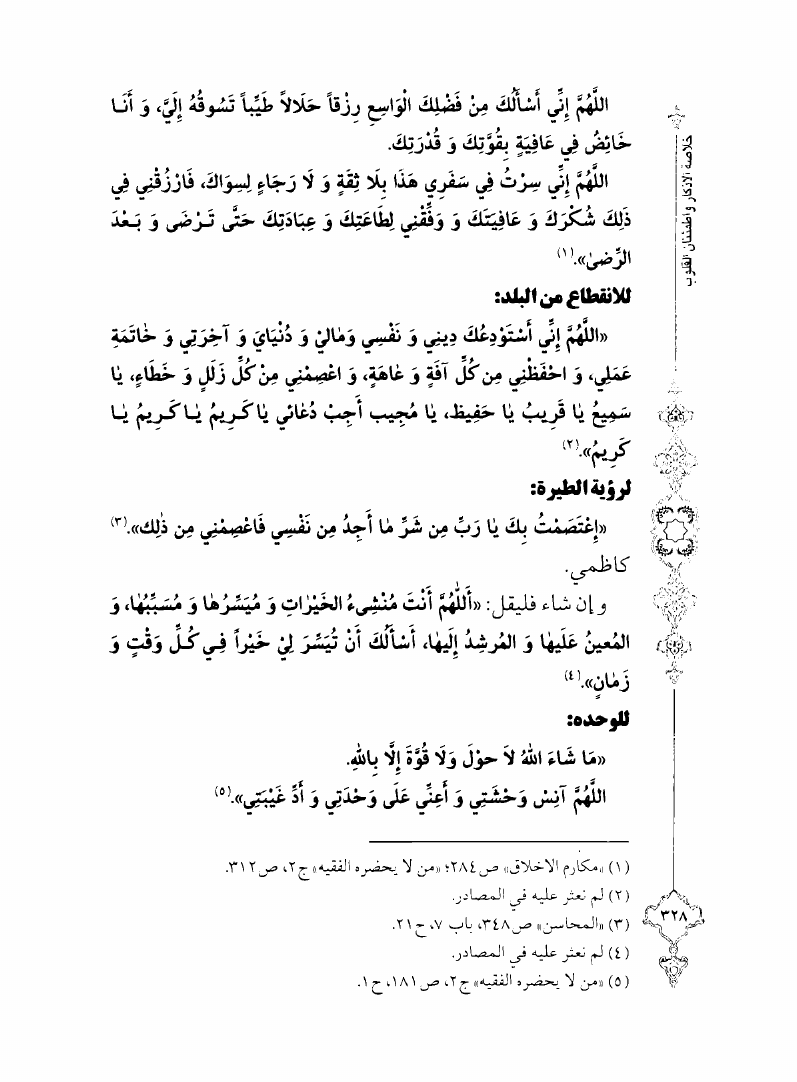 خلاصة الاذكار واطمئنان القلوب
اللَّهُمَّ إِنِّي أَسْأَلُكَ مِنْ فَضْلِكَ الْوَاسِعِ رِزْقاً حَلَالاً طَيِّباً تَسُوقُهُ إِلَيَّ، وَ أَنَـا
خَائِضٌ فِي عَافِيَةٍ بِقُوَّتِكَ وَ قُدْرَتِكَ.
اللَّهُمَّ إِنِّي سِرْتُ فِي سَفَرِي هَذَا بِلَا ثِقَةٍ وَ لَا رَجَاءٍ لِسِوَاكَ، فَارْزُقْنِي فِي
ذَلِكَ شُكْرَكَ وَ عَافِيَتَكَ وَ وَفِّقْنِي لِطَاعَتِكَ وَ عِبَادَتِكَ حَتَّى تَـرْضَى وَ بَـعْدَ
الرِّضىٰ».(١)
للانقطاع من البلد:
«اللَّهُمَّ إِنِّي أَسْتَوْدِعُكَ دِينِي وَ نَفْسِي وَمٰالِيْ وَ دُنْيَايَ وَ آخِرَتِي وَ خٰاتَمَةِ
عَمَلِي، وَ احْفَظْنِي مِن كُلِّ آفَةٍ وَ عٰاهَةٍ، وَ اعْصِمْنِي مِنْ كُلِّ زَلَلٍ وَ خَطَاءٍ، يٰا
سَمِيعُ يٰا قَرِيبُ يٰا حَفِيظ، يٰا مُجِيب أَجِبْ دُعٰائي يٰا كَرِيمُ يٰـا كَـرِيمُ يٰـا
كَرِيمُ».(٢)
لرؤية الطيرة:
«إِعْتَصَمْتُ بِكَ يٰا رَبِّ مِن شَرِّ مٰا أَجِدُ مِن نَفْسِي فَاعْصِمْنِي مِن ذٰلِك».(٣)
كاظمي.
و إن شاء فليقل: «أَللّٰهُمَّ أَنْتَ مُنْشِىءُ الخَيْرٰاتِ وَ مُيَسِّرُهٰا وَ مُسَبِّبُهٰا، وَ
المُعينُ عَلَيهٰا وَ المُرشِدُ إِلَيهٰا، أَسْأَلُكَ أَنْ تُيَسِّرَ لِيْ خَيْراً فِـي كُـلِّ وَقْتٍ وَ
زَمٰانٍ».(٤)
للوحده:
«مَا شَاءَ اللهُ لاَ حَوْلَ وَلَا قُوَّةَ إِلَّا بِاللهِ.
اللَّهُمَّ آنِسْ وَحْشَتِي وَ أَعِنِّي عَلَى وَحْدَتِي وَ أَدِّ غَيْبَتِي».(٥)
(١) «مكارم الاخلاق» ص٢٨٤؛ «من لا يحضره الفقيه» ج٢، ص٣١٢.
(٢) لم نعثر عليه في المصادر.
(٣) «المحاسن» ص٣٤٨، باب ٧، ح٢١.
(٤) لم نعثر عليه في المصادر.
(٥) «من لا يحضره الفقيه» ج٢، ص١٨١، ح١.
٣٢٨